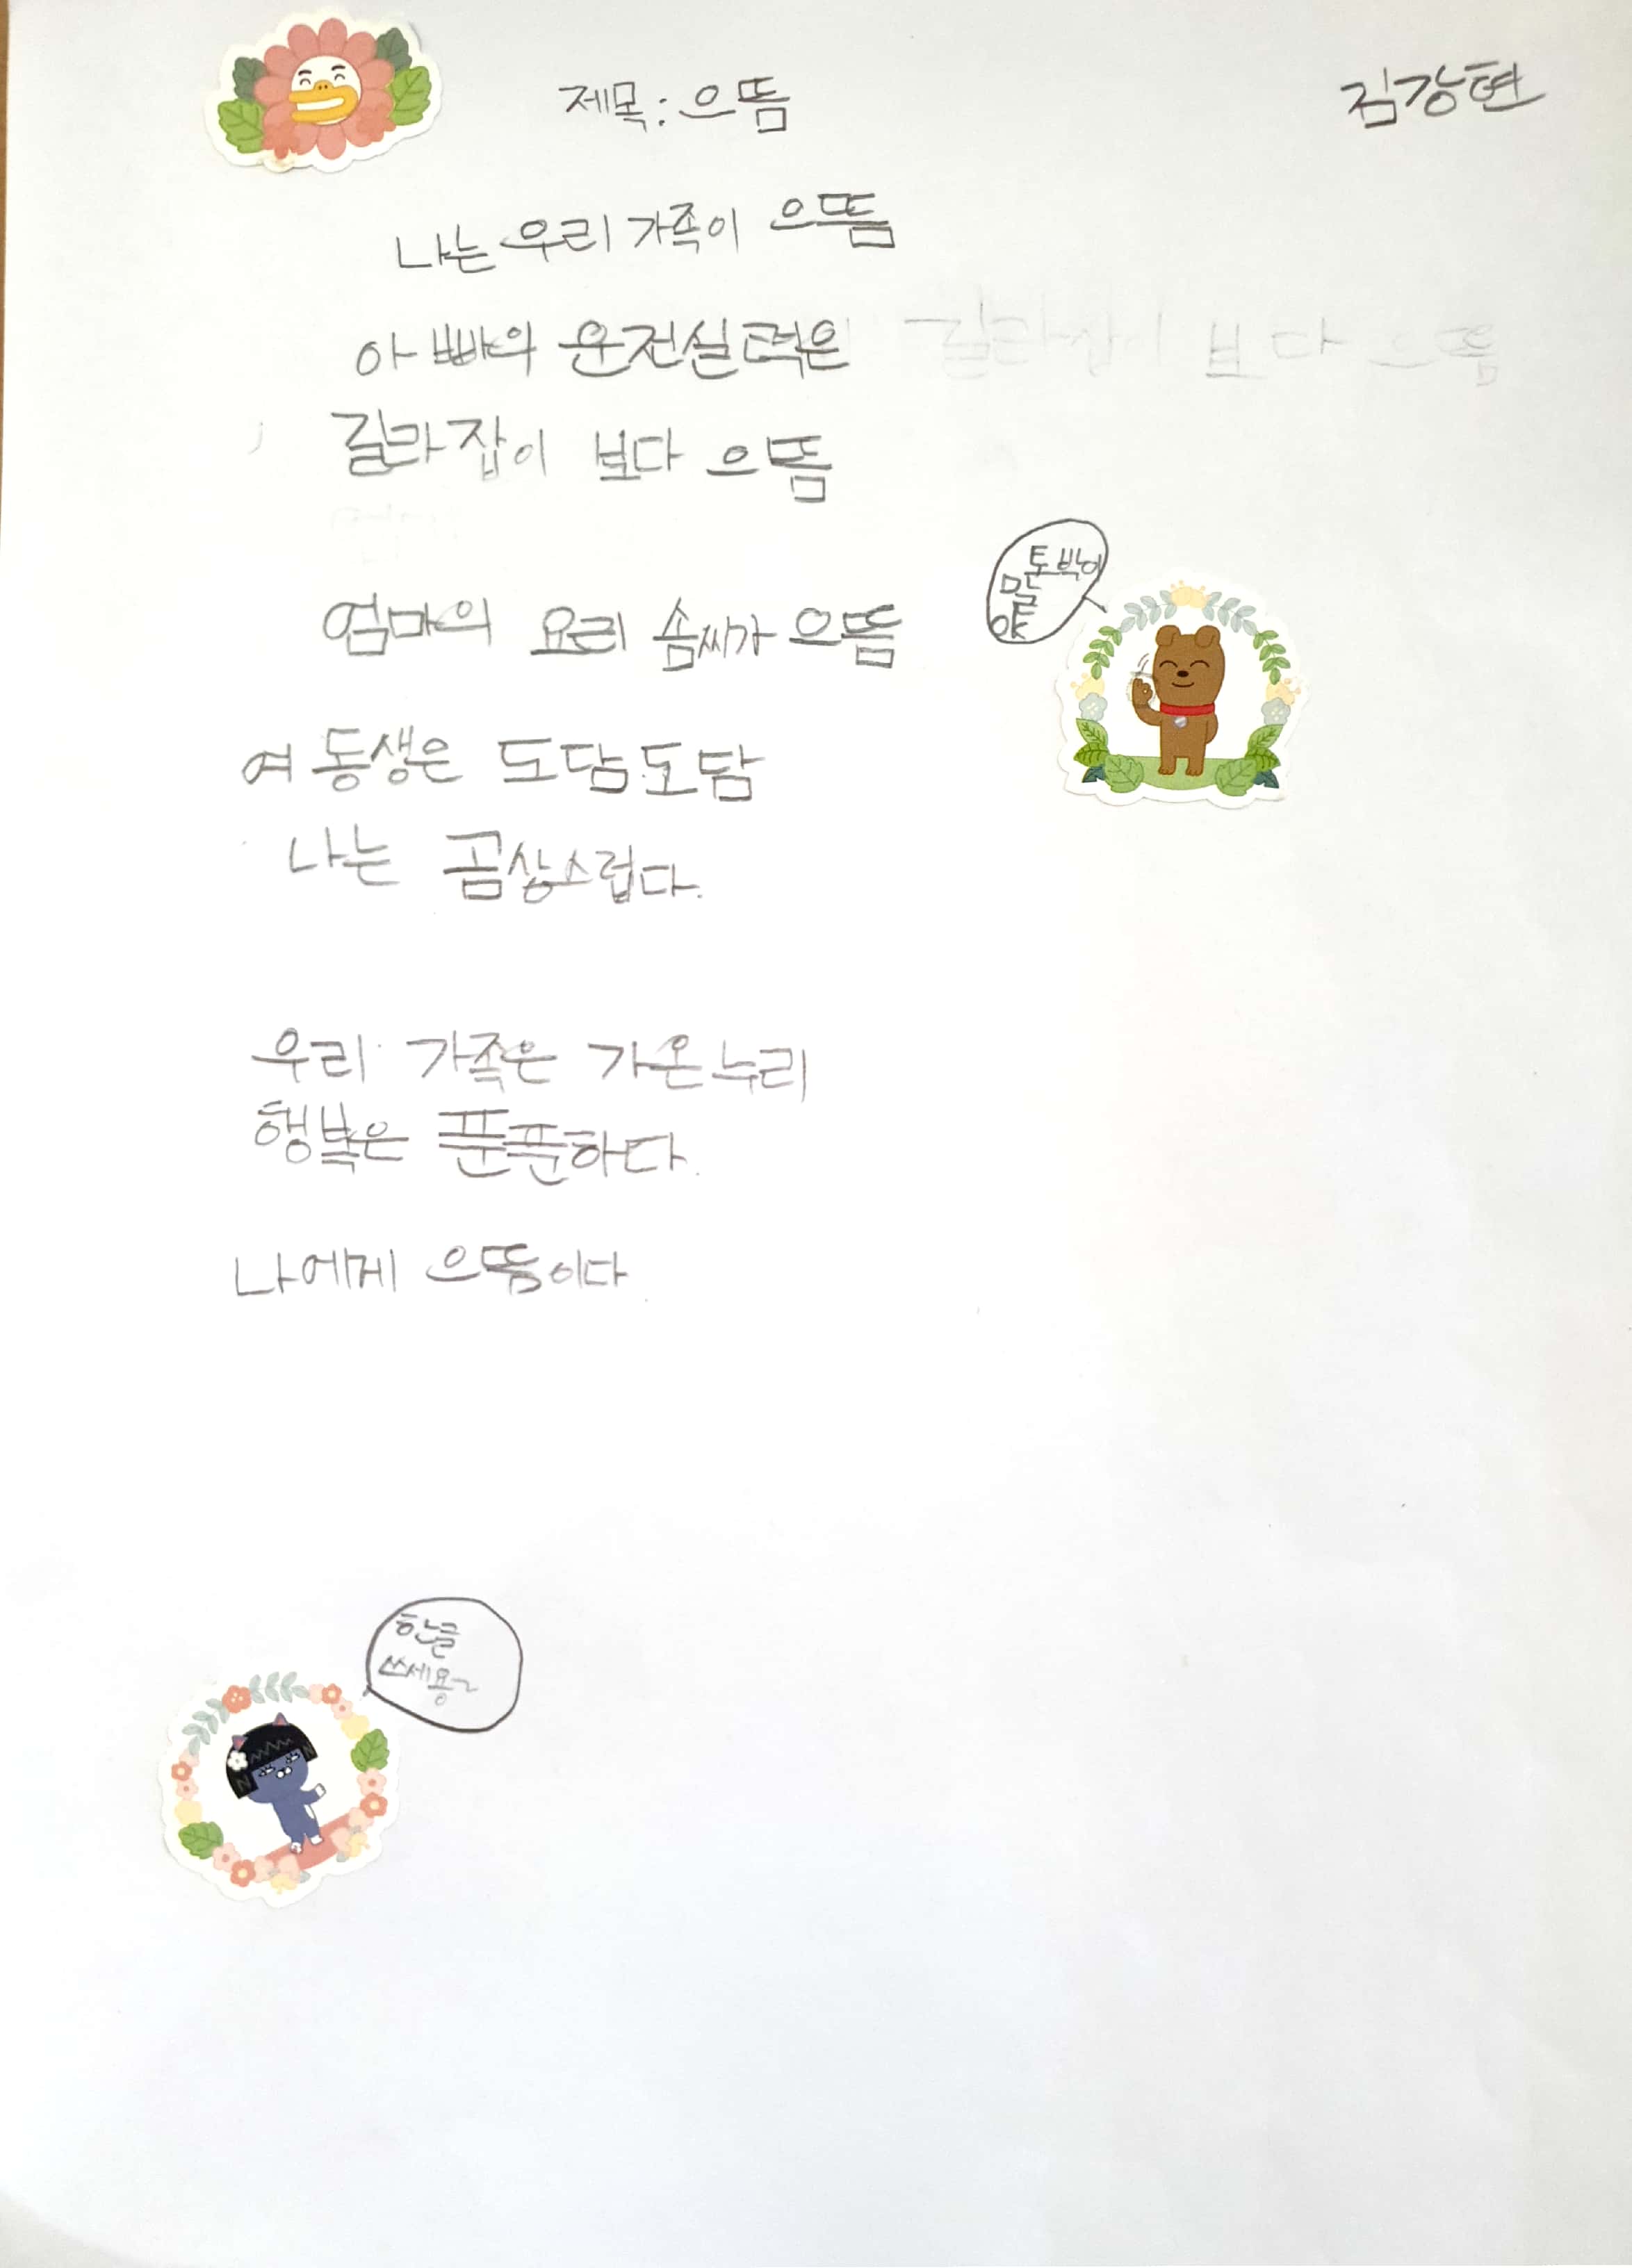 제목: 으뜸
김강현
나는 우리 가족이 으뜸
아빠의 운전실력은
길라잡이 보다 으뜸
엄마의 요리 솜씨가 으뜸
여동생은 도담도담
나는 곰상스럽다.
우리 가족은 가온누리
행복은 푼푼하다.
나에게 으뜸이다
토박이
말
한글
쓰세용~